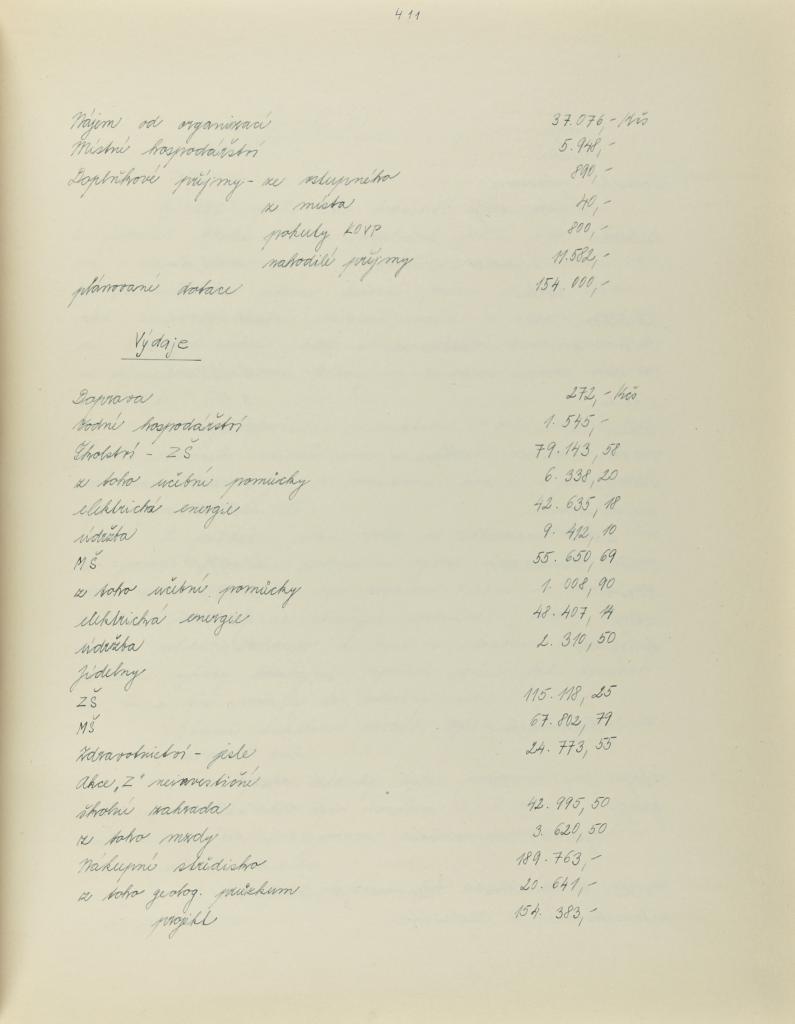 411
Nájem od organizací 37.076,- Kčs
Místní hospodářství 5.948,-
Doplňkové příjmy - ze vstupného 890,-
z místa 40,-
pokuty KOVP 800,-
nahodilé příjmy 11.582,-
plánované dotace 154.000,-
Výdaje
Doprava 272,- Kčs
Vodní hospodářství 1.545,-
Školství - ZŠ 79.143,58
z toho učební pomůcky 6.338,20
elektrická energie 42.635,18
údržba 9.412,10
MŠ 55.650,69
z toho učební pomůcky 1.008,90
elektrická energie 48.407,14
údržba 2.310,50
Jídelny
ZŠ 115.118,25
MŠ 67.802,79
Zdravotnictví - jesle 24.773,55
Akce „Z" neinvestiční
školní zahrada 42.995,50
z toho mzdy 3.620,50
Nákupní středisko 189.763,-
z toho geolog. průzkum 20.641,-
projekt 154.383,-